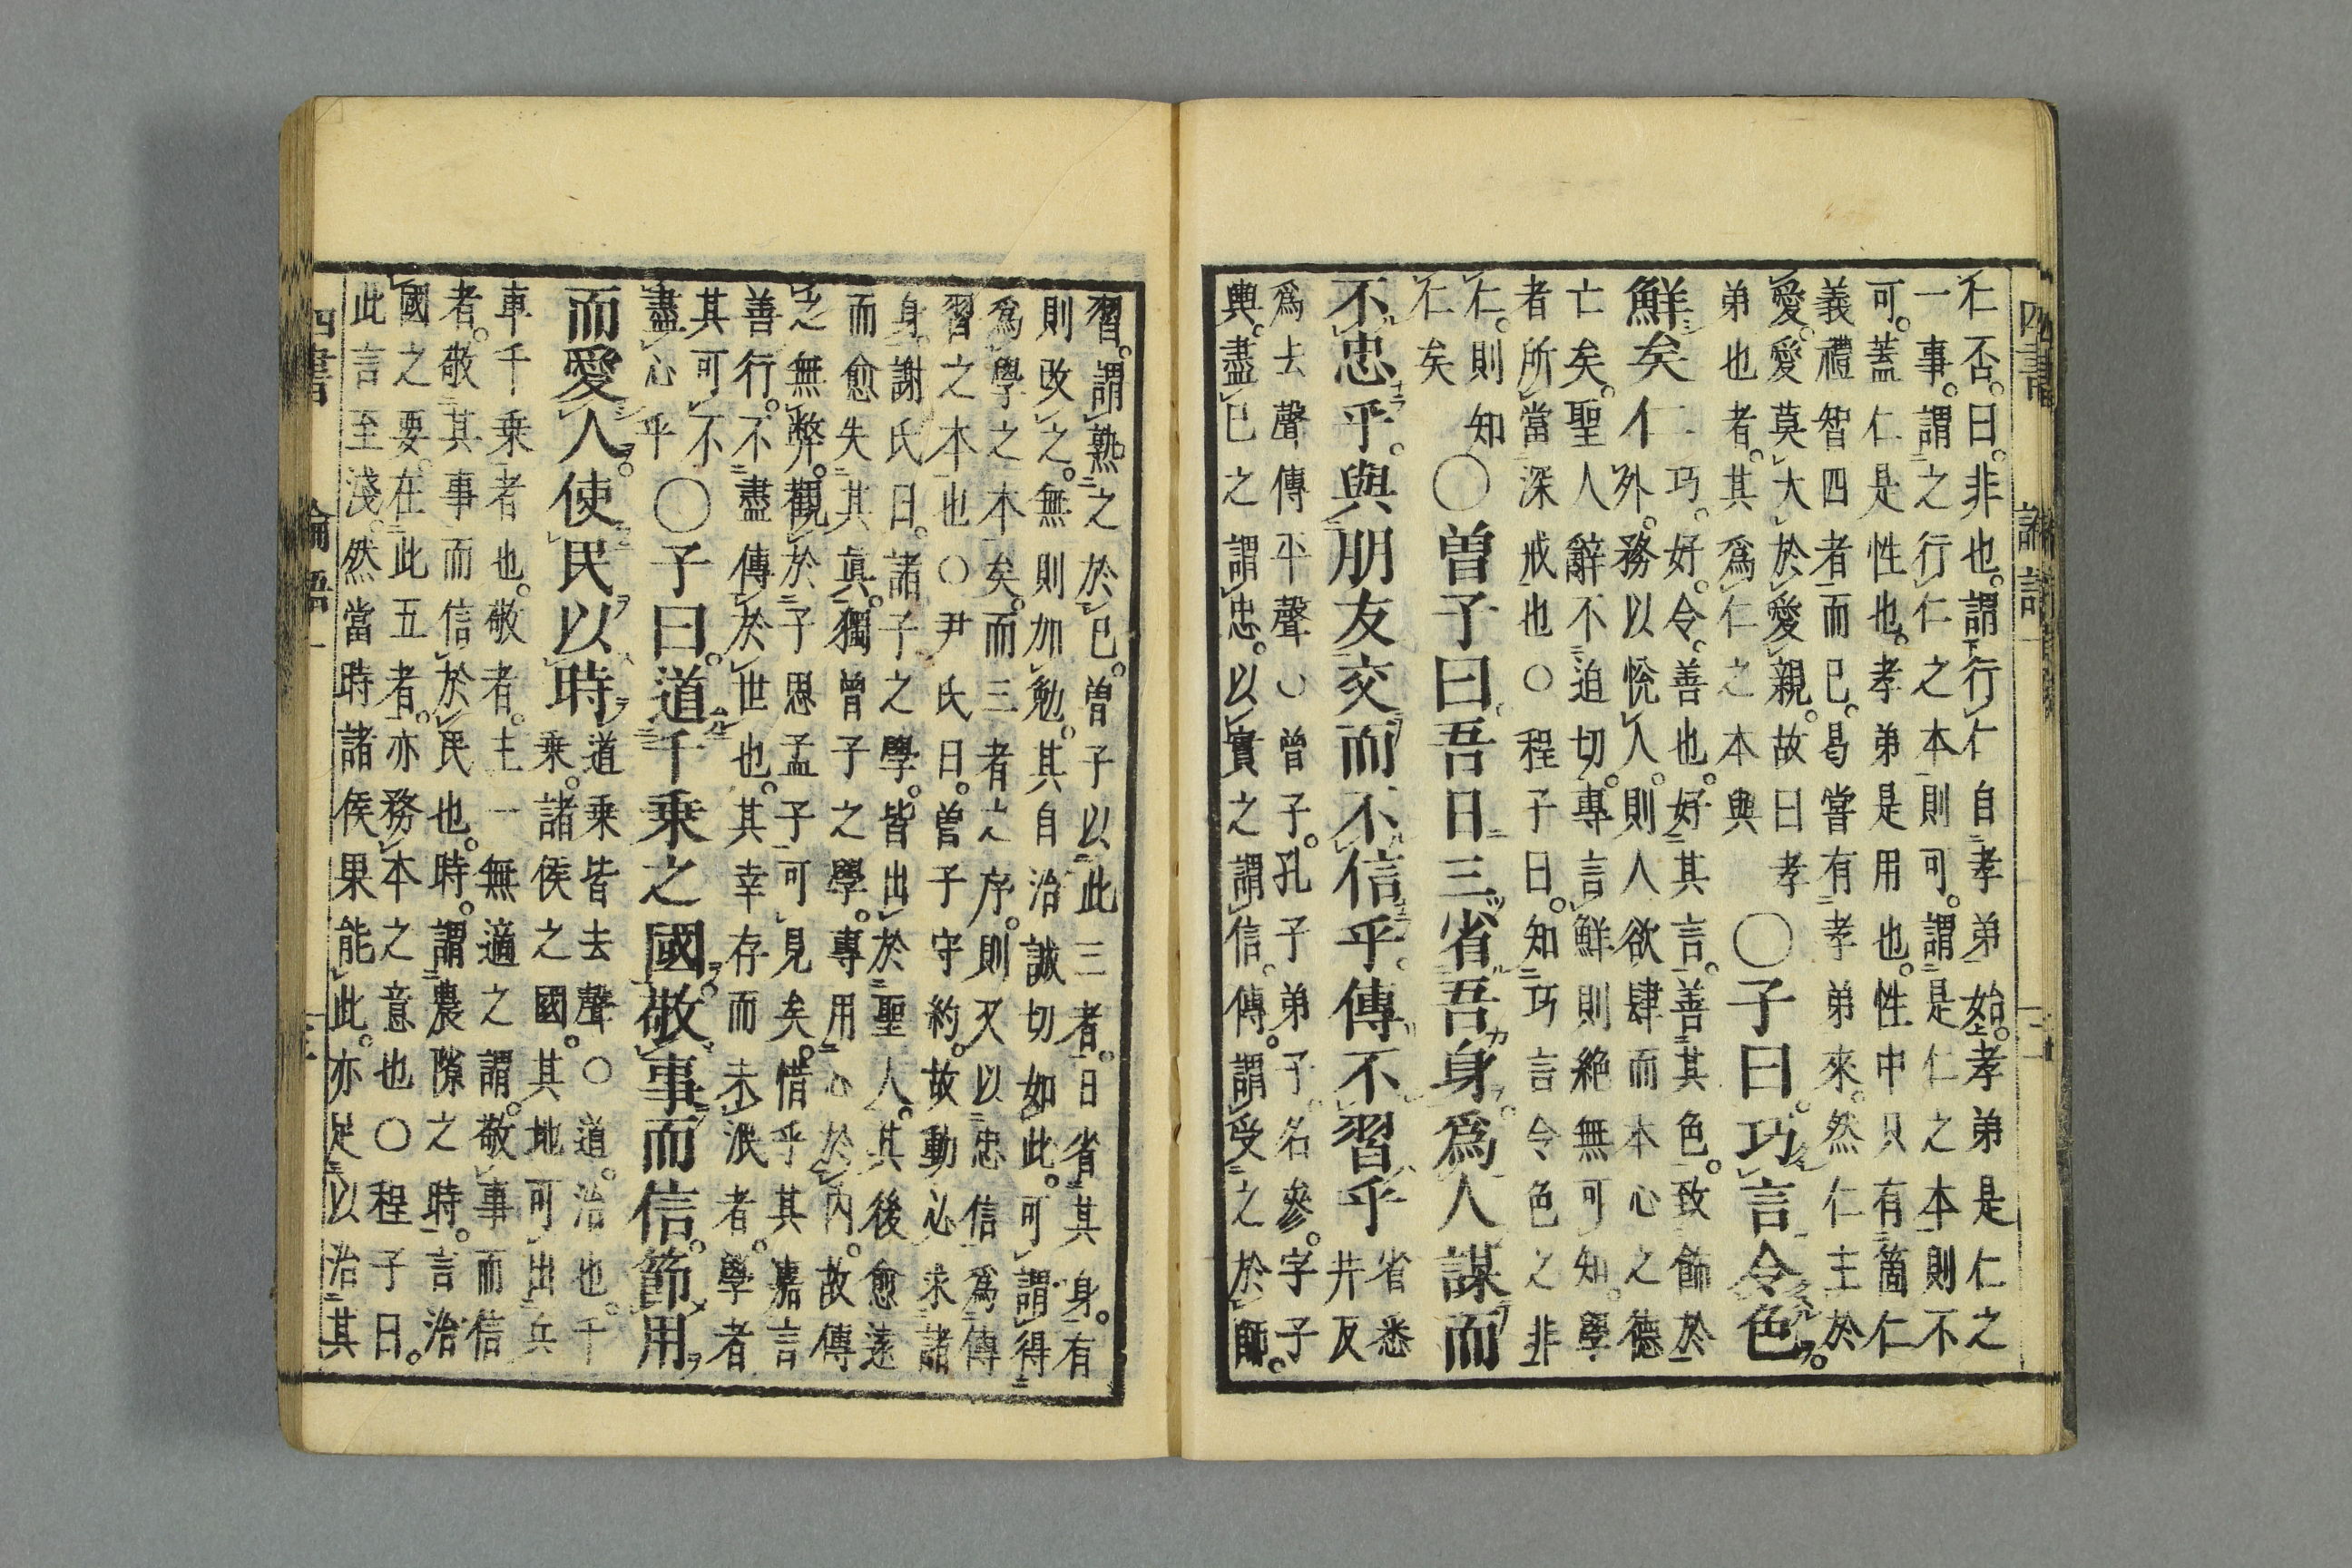 仁否。曰。非也。謂行仁自孝弟始。孝弟是仁之
一事。謂之行仁之本則可。謂是仁之本則不
可。蓋仁是性也。孝弟是用也。性中只有箇仁
義禮智四者而已。曷嘗有孝弟來。然仁主於
愛。愛莫大於愛親。故曰孝
弟也者。其爲仁之本與
〇子曰。巧言令色。
鮮矣仁
巧。好。令。善也。好其言。善其色。致飾於
外。務以悅人。則人欲肆而本心之德
亡矣。聖人辭不迫切。專言鮮則絕無可知。學
者所當深戒也〇程子曰。知巧言令色之非
仁。則知
仁矣
〇曽子曰。吾日三省吾身。爲人謀而
不忠乎。與朋友交而不信乎。傳不習乎
省悉
井反
爲去聲傳平聲〇曽子。孔子弟子名參。字子
輿。盡已之謂忠。以實之謂信。傳。謂受之於師。
四書
三
習。謂熟之於已。曽子以此三者。日省其身。有
則改之。無則加勉。其自治誠切如此。可謂得
爲學之本矣。而三者之序。則又以忠信爲傳
習之本也〇尹氏曰。曽子守約。故動必求諸
身。謝氏曰。諸子之學。皆出於聖人。其後愈遠
而愈失其眞。獨曽子之學。專用心於內。故傳
之無弊。觀於子思孟子可見矣。惜乎其嘉言
善行。不盡傳於世也。其幸存而未泯者。學者
其可不
盡心乎
〇子曰。道千乗之國。敬事而信。節用
而愛人。使民以時
道乗皆去聲〇道。治也。千
乗。諸侯之國。其地可出兵
車千乗者也。敬者。主一無適之謂。敬事而信
者。敬其事而信於民也。時。謂農隙之時。言治
國之要。在此五者。亦務本之意也〇程子曰。
此言至淺。然當時諸侯果能此。亦足以治其
四書 論語一 三